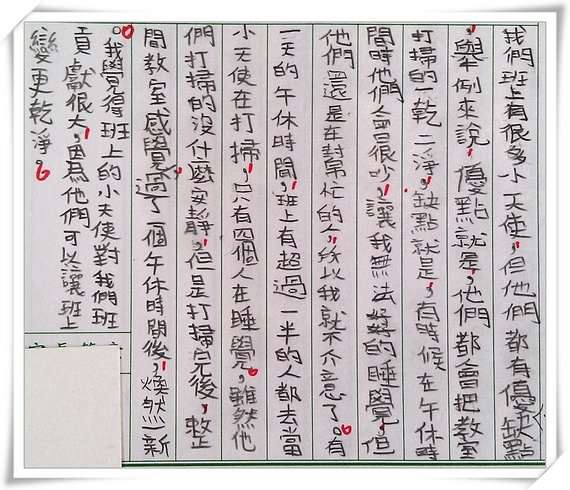 我們班上有很多小天使,但他們都有優缺點
,舉例來說,優點就是,他們都會把教室
打掃的一乾二淨,缺點就是,有時候在午休時
間時他們會很吵,讓我無法好好的睡覺,但
他們還是在幫忙的人,所以我就不介意了。有
一天的午休時間,班上有超過一半的人都去當
小天使在打掃,只有四個人在睡覺。雖然他
們打掃的沒什麼安靜,但是打掃完後,整
間教室感覺過了一個午休時間後,煥然一新
。我覺得班上的小天使對我們班
貢獻很大,因為他們可以讓班上
變更乾淨。